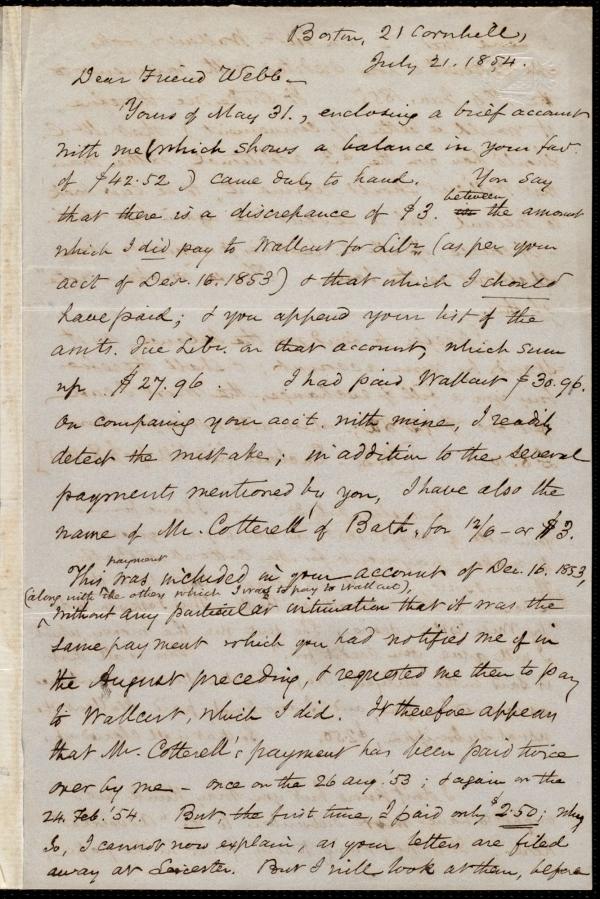 Boston, 21 Cornhill,
July 21. 1854.
Dear Friend Webb—
Yours of May 31., enclosing a brief account
with me (which shows a balance in your fav.
of $42.52) came duly to hand. You say
that there is a discrepance of $3. between the amount
which I did pay to Wallcut for Libr (as per your
acct of Dec. 16. 1853) & that which I should
have paid; & you append your list of the
amts. due Libr. on that account, which sum
up $27.96. I had paid Wallcut $30.96.
On comparing your acct. with mine, I readily
detect the mistake; in addition to the several
payments mentioned by you, I have also the
name of Mr. Cotterell of Bath, for 12/6 — or $3.
This payment was included in your account of Dec. 16. 1853,
(along with the others which I was to pay to Wallcut)
without any particular intimation that it was the
same payment which you had notified me of in
the August preceding, & requested me then to pay
to Wallcut, which I did. It therefore appears
that Mr. Cotterell's payment has been paid twice
over by me — once on the 26 Aug. '53; & again on the
24. Feb. '54. But, the first time, I paid only $2.50; why
so, I cannot now explain, as your letters are filed
away at Leicester. But I will look at them, before